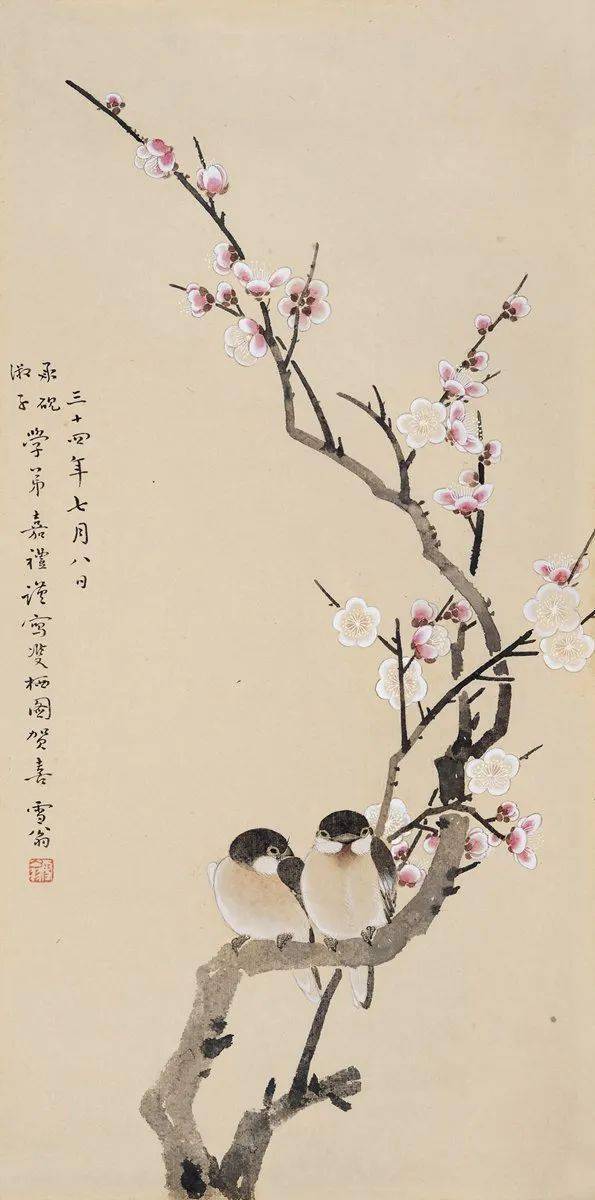 三十四年七月八日
承砚
淑子
学弟嘉禮谨寫雙栖圖贺喜 雪翁